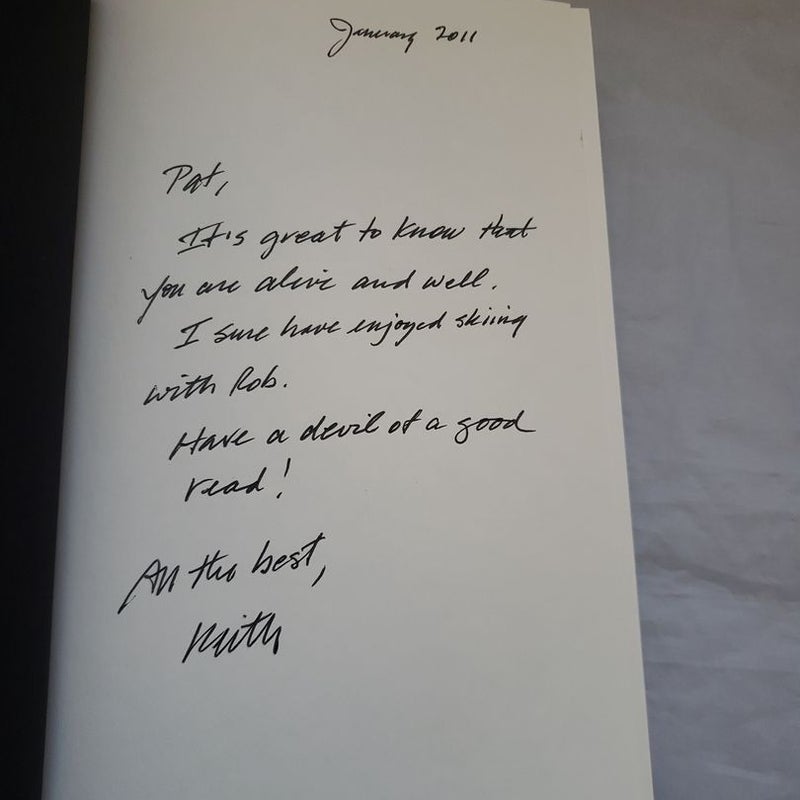 January 2011
Pat,
It's great to know that
you are alive and well.
I sure have enjoyed skiing
with Rob.
Have a devil of a good
read!
All the best,
Keith